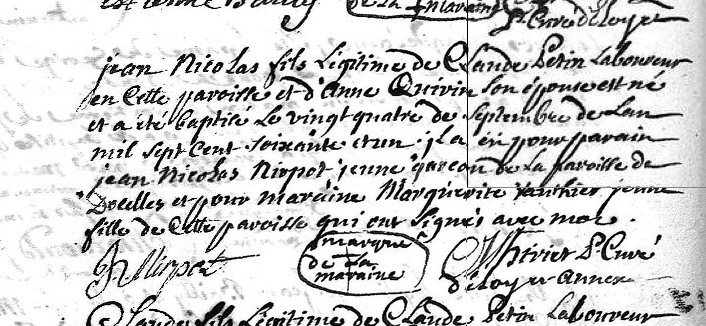 de la maraine
jean Nicolas fils Légitime de Claude Petin Laboureur
en Cette paroisse et d'Anne Quirin Son épouse est né
et a été baptisé le vingt quatre de Septembre de Lan
mil Sept Cent Soixante et un : jl a eü pour parain
jean Nicolas Nirpot jenne garcon de La paroisse de
Docelles et pour maraine Marguerite Vauthier jenne
fille de Cette paroisse qui ont Signés avec moi.
marque
de La
maraine
Claude fils Légitime de Claude Petin Laboureur